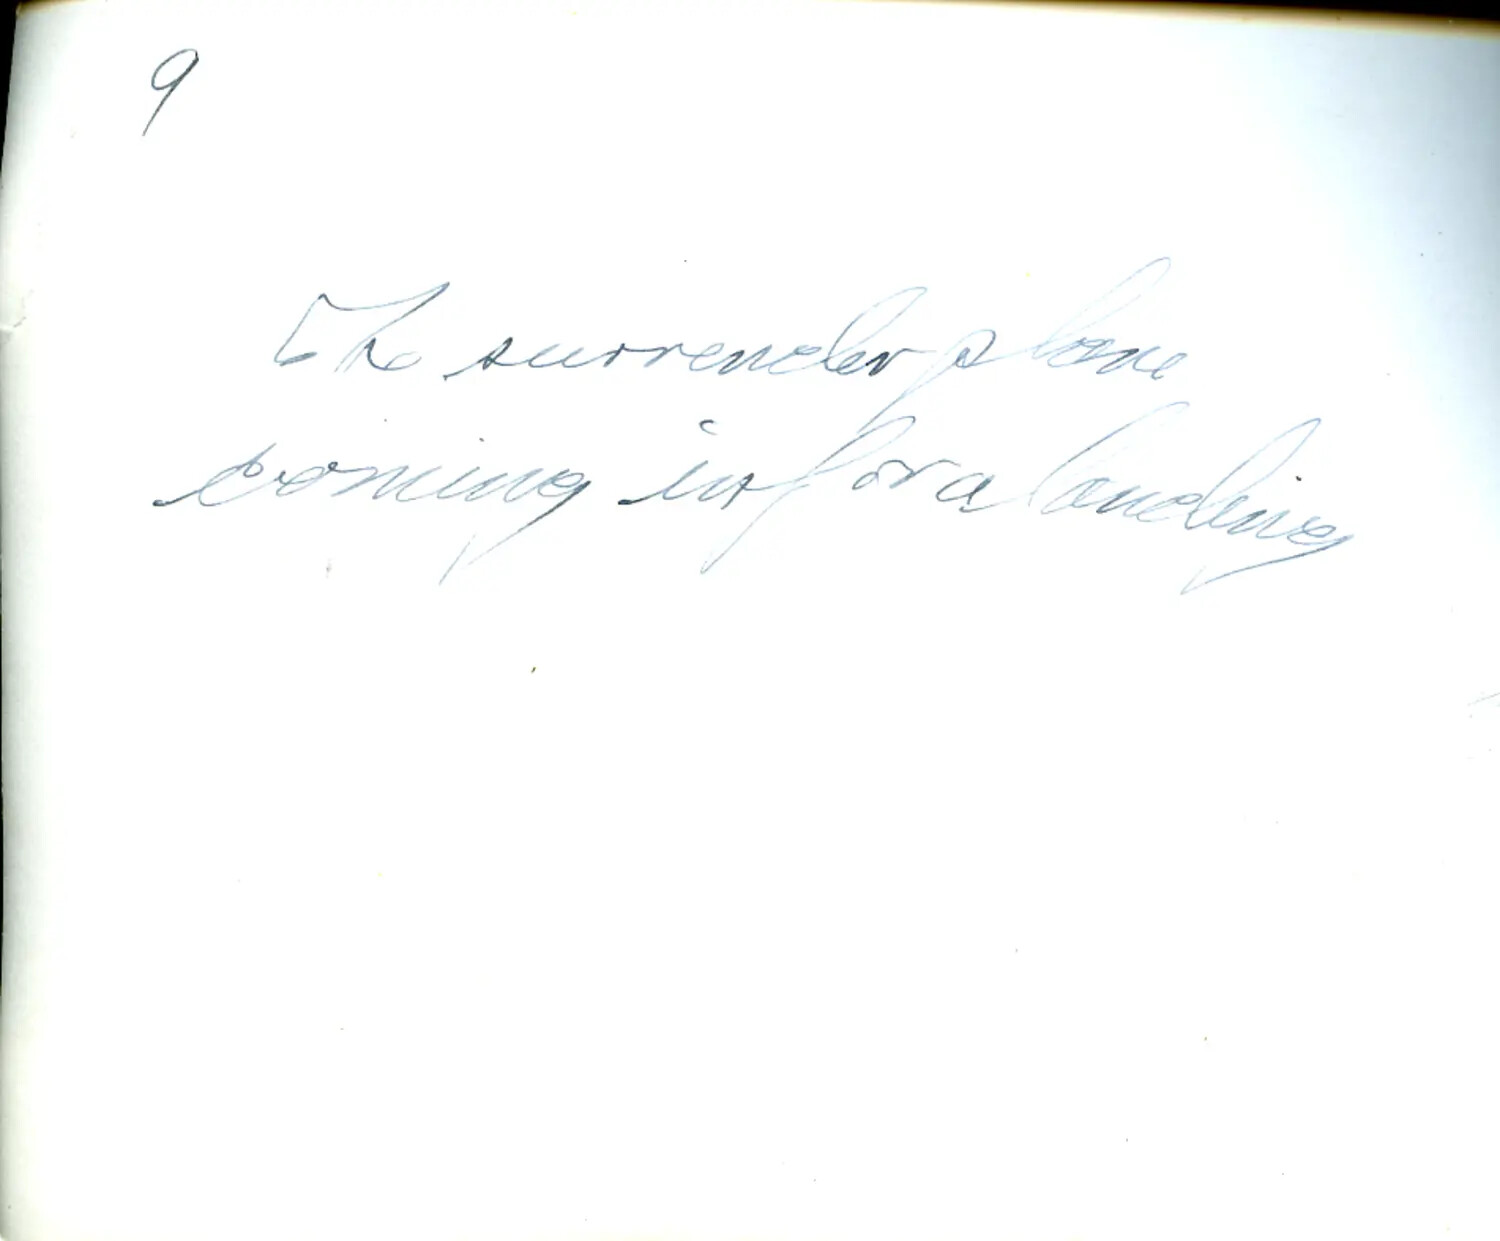 9
The surrender plane
coming in for a landing